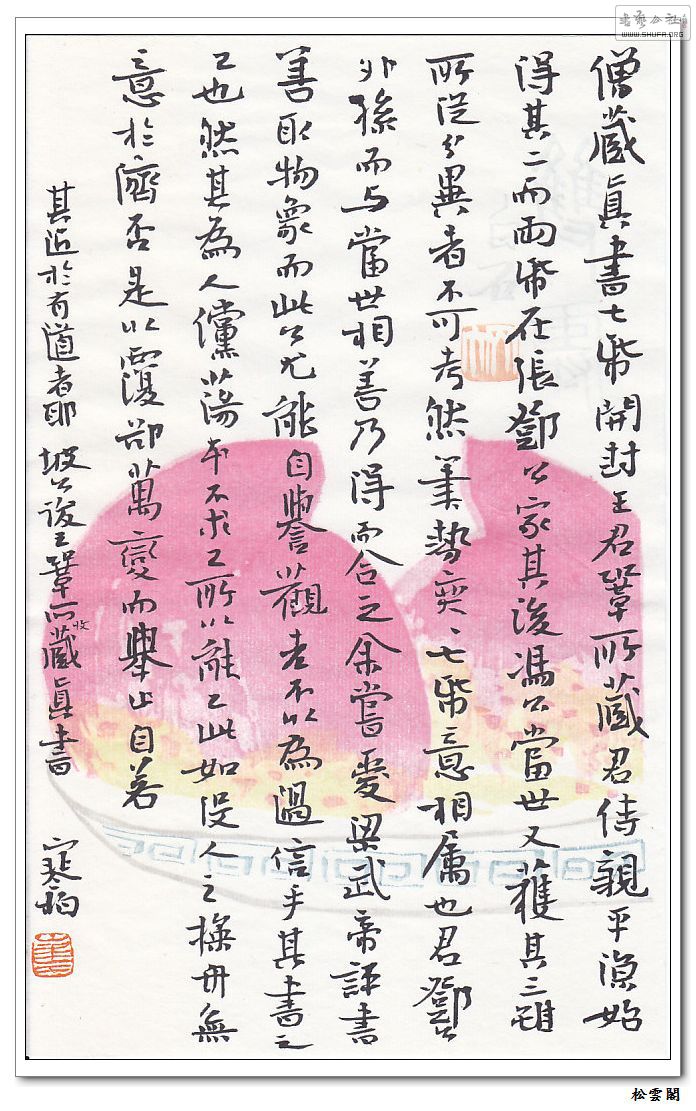 僧藏真書七帋開封王君鞏所藏君侍親平涼始
得其二而兩帋在張鄧公家其後馮公當世又獲其三雖
所從分異者不可考然筆勢奕〻七帋意相属也君鄧公
外孫而与當世相善乃得而合之余嘗愛梁武帝評書
善取物象而此公尤能自譽觀者不以為過信乎其書之
工也然其為人儻蕩本不求工所以能工此如沒人之操舟無
意於濟否是以覆卻萬變而舉止自若
其近於有道者耶 坡公跋王鞏所收藏真書
寒柏
松雲閣
書藝公社
WWW.SHUFA.ORG